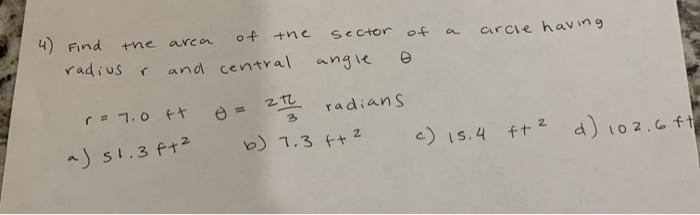 4) Find the area of the sector of a circle having
radius r and central angle θ
r = 7.0 ft θ = 2π/3 radians
a) 51.3 ft² b) 7.3 ft² c) 15.4 ft² d) 102.6 ft